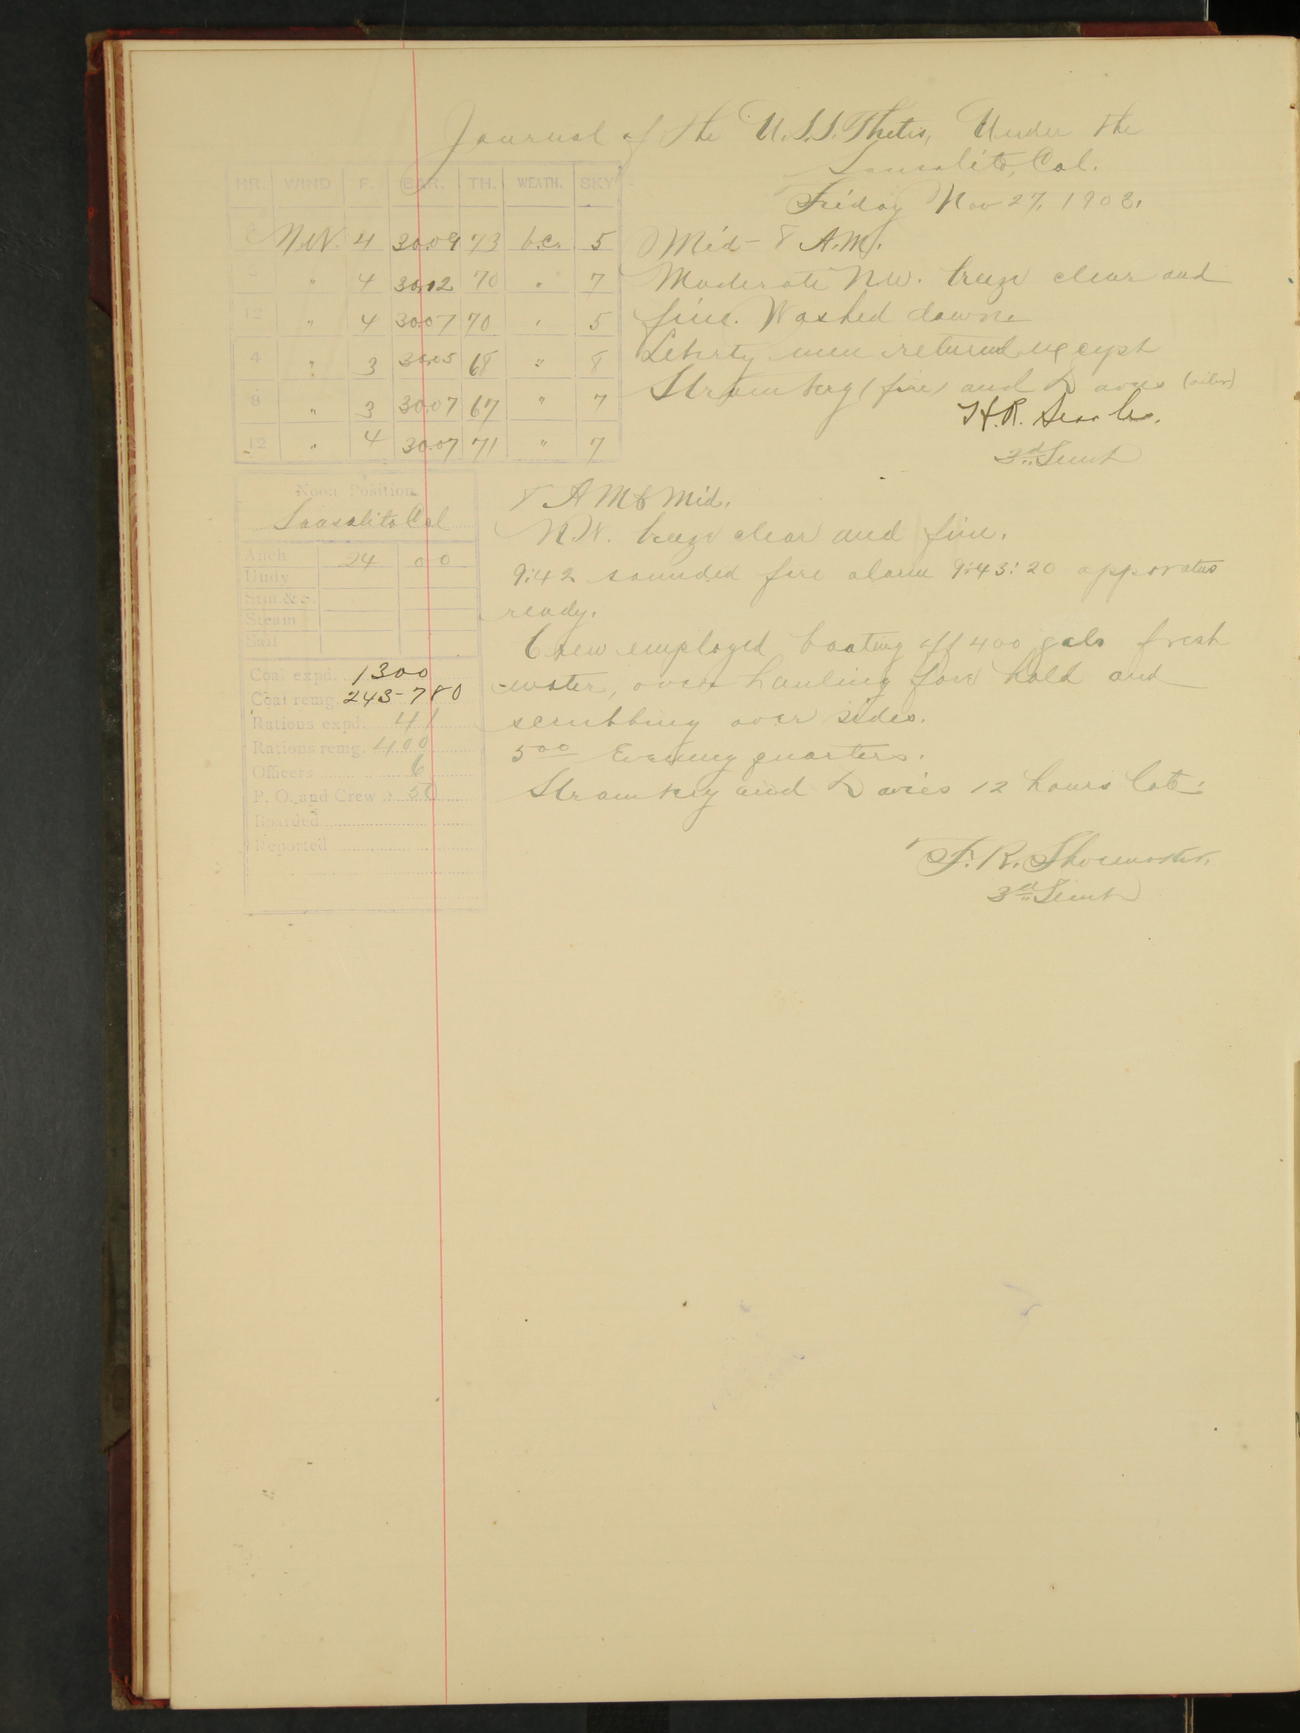 Journal of the U.S.S. Thetis, Under the
Sausalito, Cal.
Friday Nov 27, 1908.
HR. WIND F. BAR. TH. WEATH. SKY
N.W. 4 30.09 73 b.c. 5
" 4 30.12 70 " 7
12 " 4 30.07 70 " 5
4 " 3 30.05 68 " 8
8 " 3 30.07 67 " 7
12 " 4 30.07 71 " 7
Mid - 8 A.M.
Moderate NW. breeze clear and
fine. Washed down
Liberty men returned except
Stromberg (fire) and Davies (oiler)
H.R. Searles.
3d Lieut
Noon Position
Sausalito Cal
Anch 24 00
Undy
Stm. & S.
Steam
Sail
Coal expd. 1300
Coal remg. 243-780
Rations expd. 41
Rations remg. 400
Officers 6
P. O. and Crew 50
Boarded
Reported
8 AM to Mid.
N.W. breeze clear and fine.
9:42 sounded fire alarm 9:43:20 apparatus
ready.
Crew employed boating off 400 gals fresh
water, over hauling fore hold and
scrubbing over sides.
5 00 Evening quarters.
Stromberg and Davies 12 hours late.
F. R. Shoemaker.
3rd Lieut